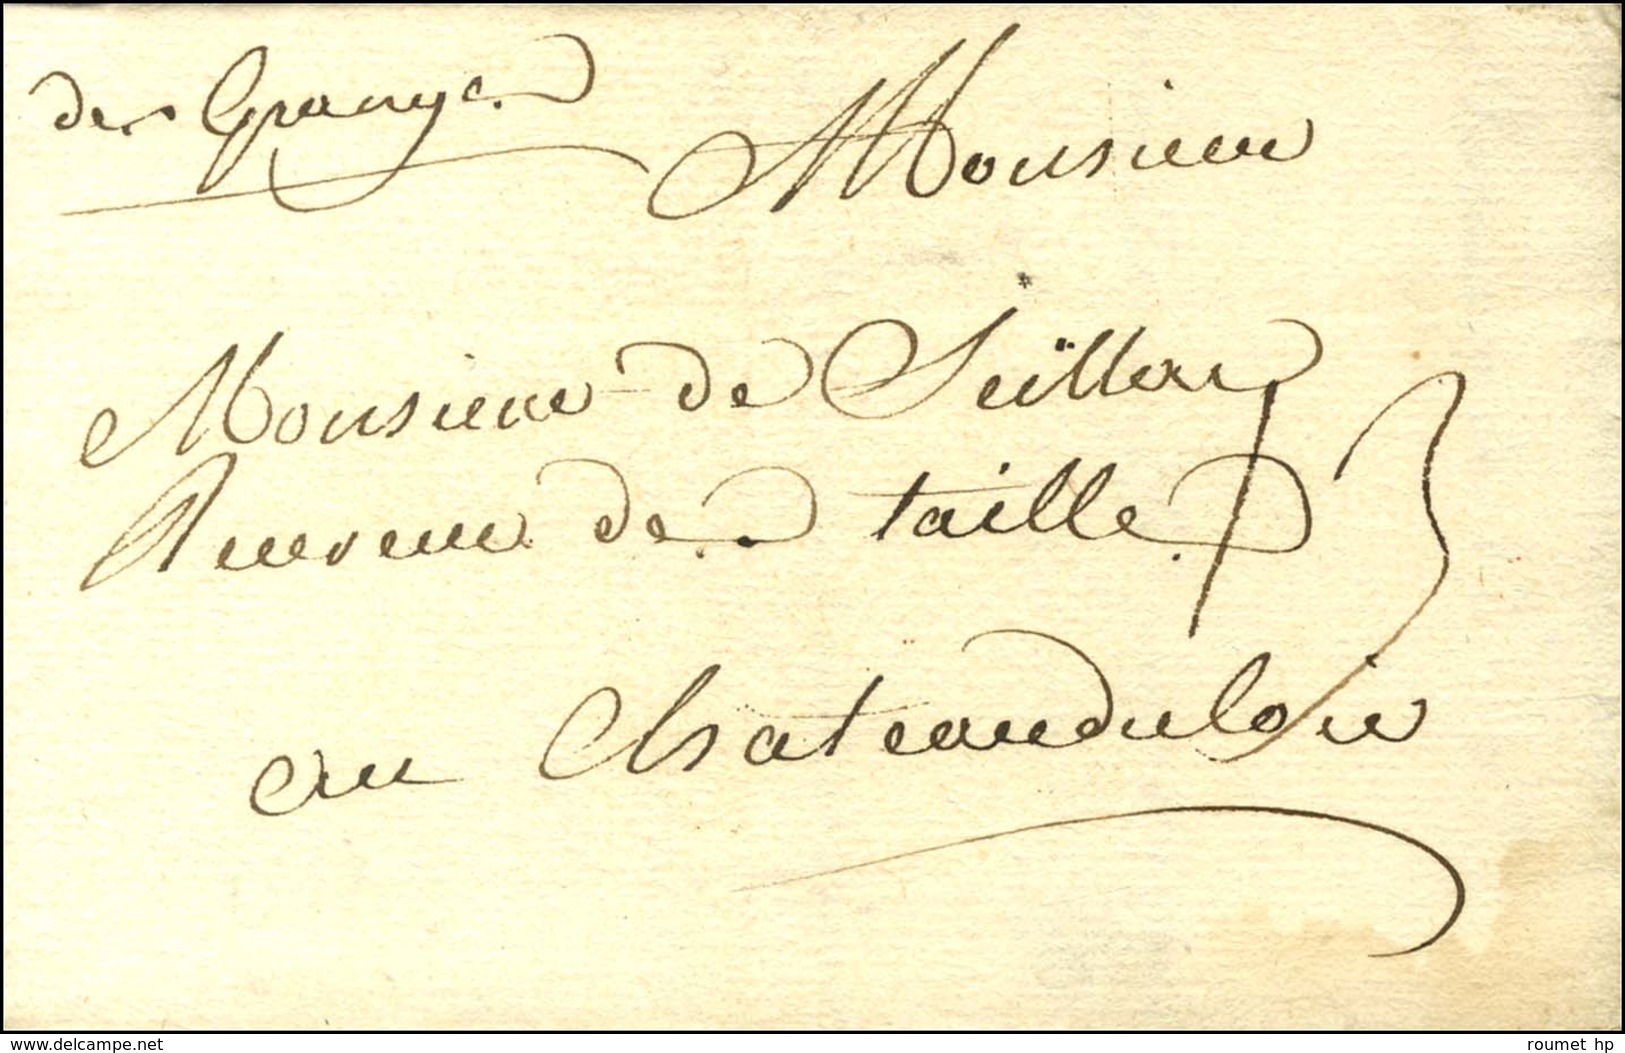 des Granges
Monsieur
Monsieur de Seïllac
Receveur de taille
13
au Chateauduloir
delcampe.net
roumet hp